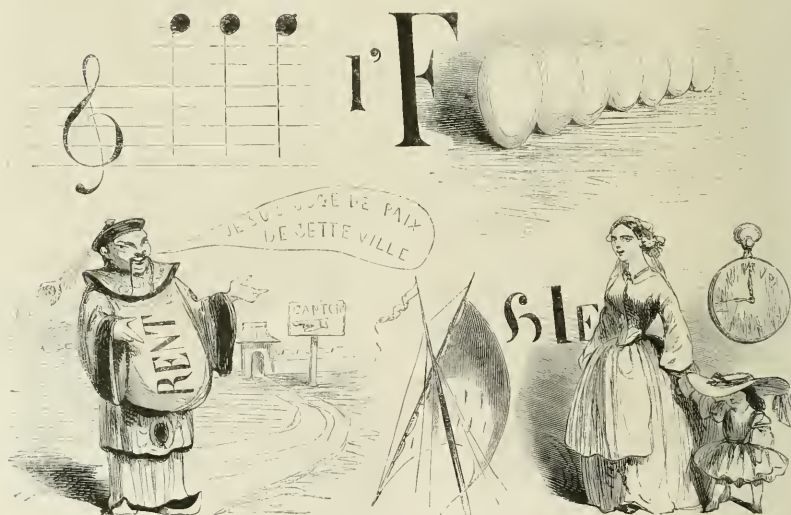 l' F
JE SUIS JUGE DE PAIX
DE CETTE VILLE
CANTON
RENT